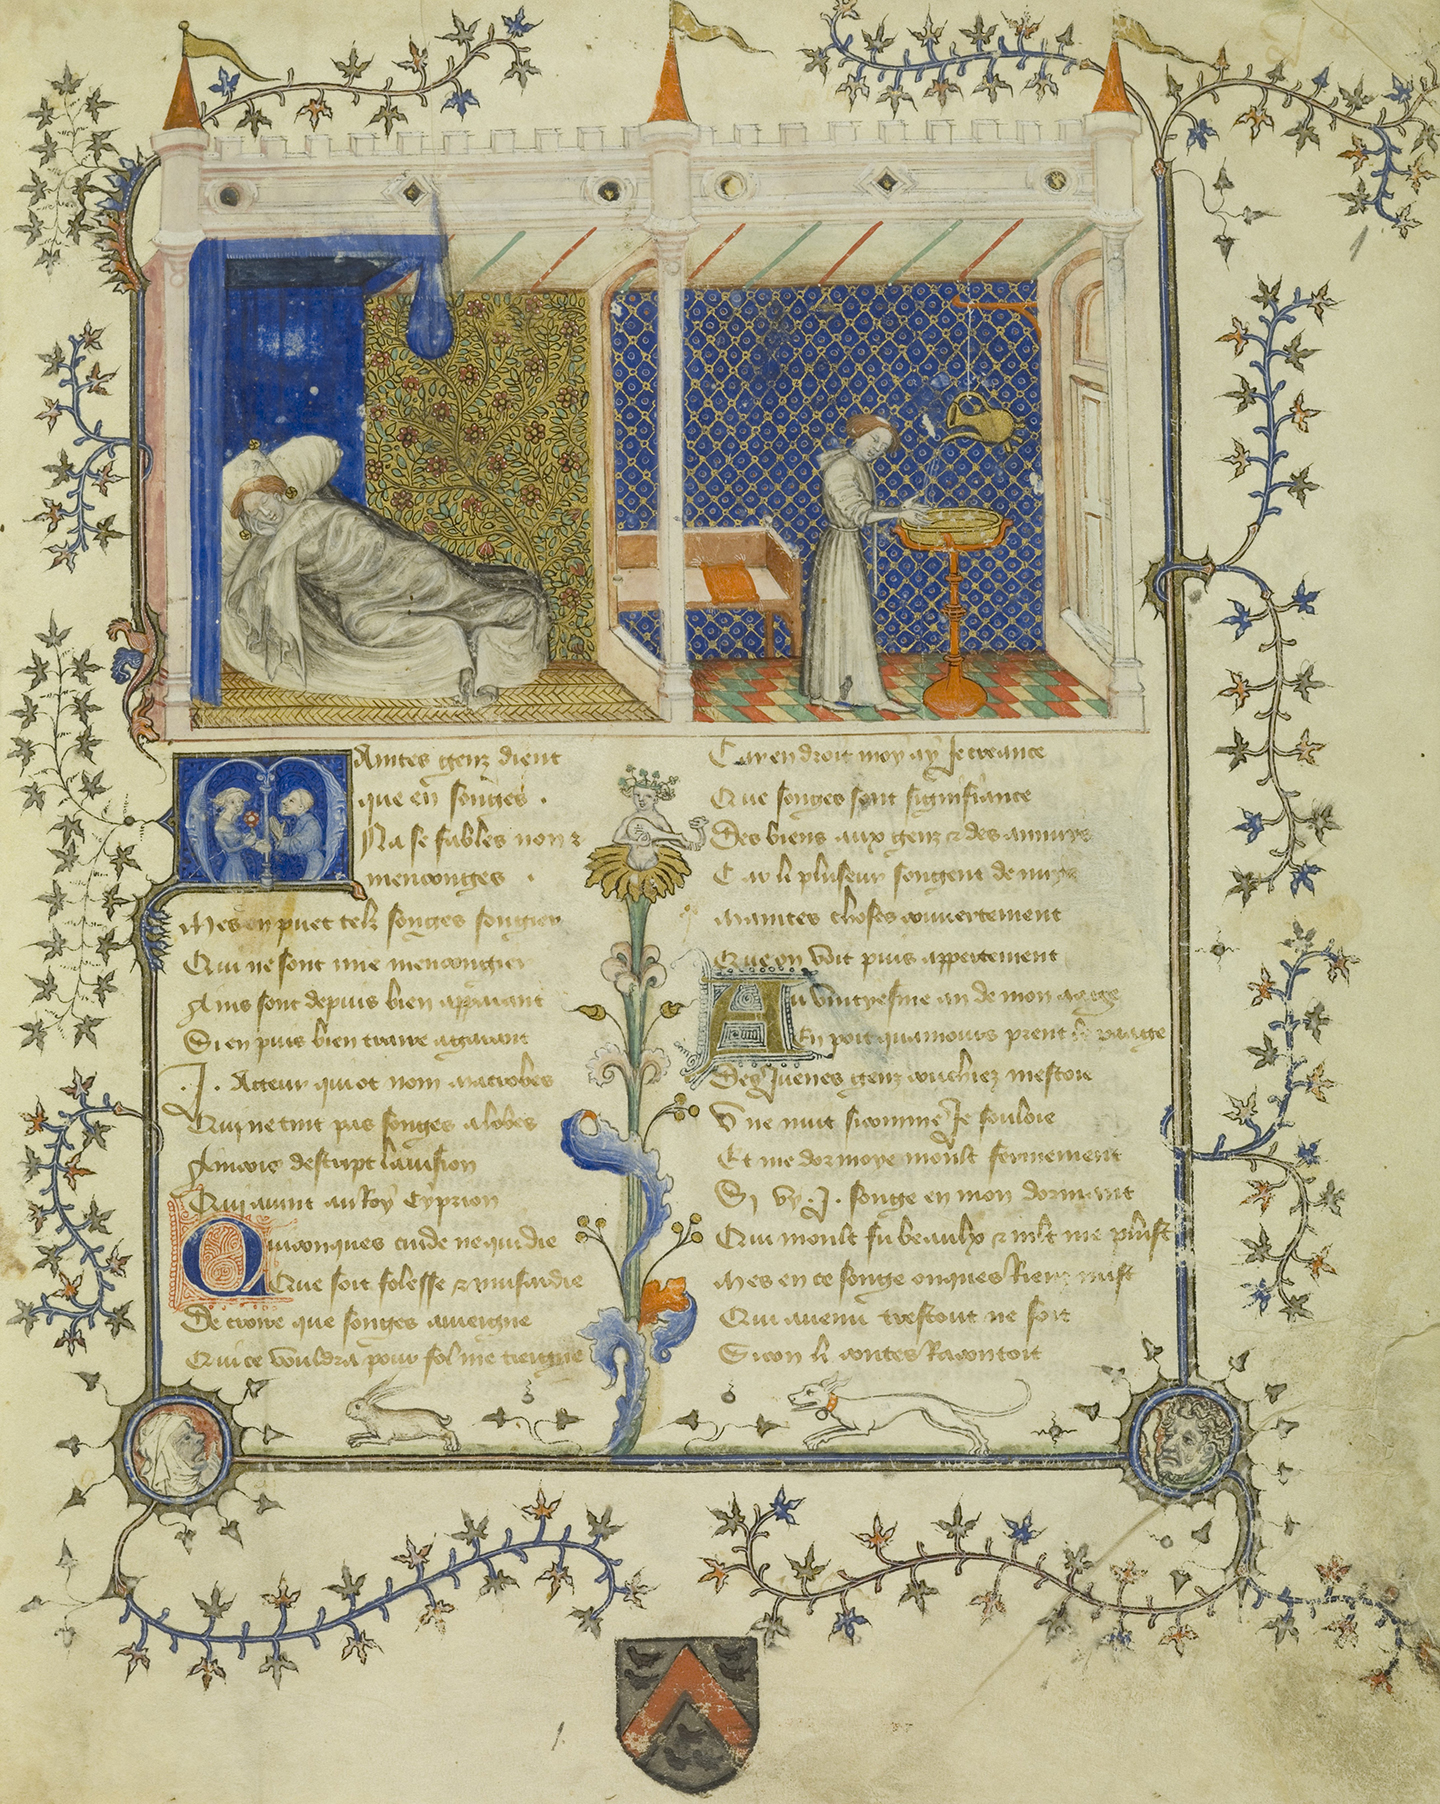 Maintes genz dient
que en songes
Na se fables non &
menconges
Mes en puet telz songes songier
Qui ne sont mie mencongier
Ains sont depuis bien apparant
Si en puis bien traire a garant
.J. Acteur qui ot nom macrobes
Qui ne tint pas songes a lobes
Aincois descript lavision
Qui avint au Roy Cyprion
Quiconques cuide ne qui die
Que soit folesse & musardie
De croire que songes aviengne
Qui ce vouldra pour fol me tiengne
Car en droit moy ay Je creance
Que songes sont signifiance
Des biens aux genz & des annuys
Car li pluseur songent de nuys
Maintes choses couvertement
Que on voit puis appertement
Au vintyesme an de mon aage
En point quamours prent le paage
Des Juenes genz couchiez mestoie
Vne nuit sicomme Je souloie
Et me dormoye moult forment
Sy vy .J. songe en mon dormant
Qui moult fu beaulx & mlt me plust
Mes en ce songe onques Riens nust
Qui avenu trestout ne soit
Sicon li contes Racontoit